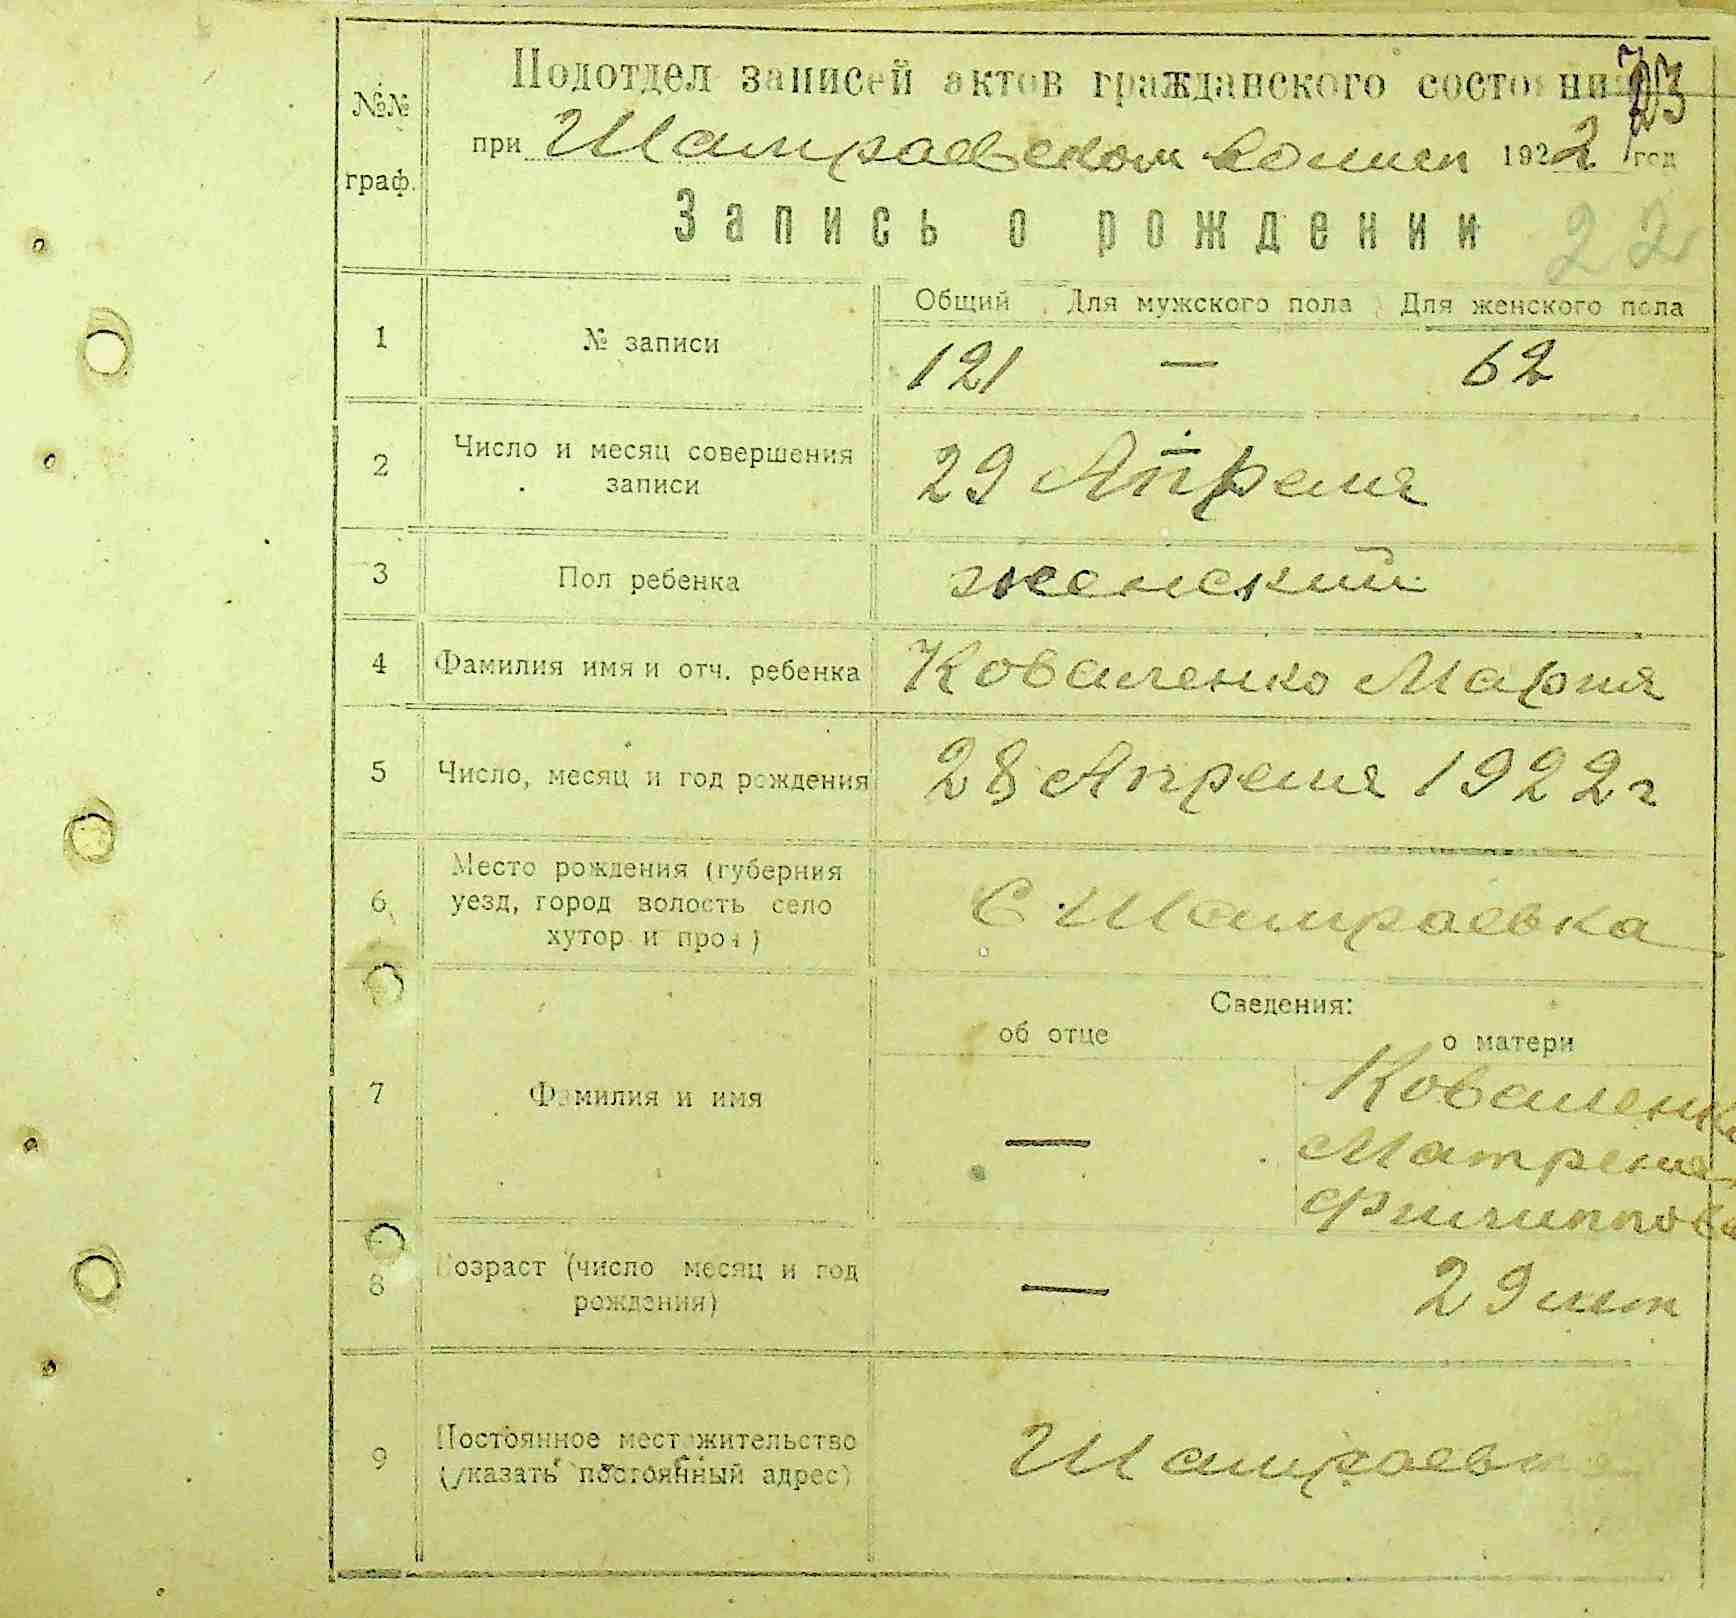 Подотдел записей актов гражданского состояния
№№ граф.
при Шамраевском волисп 1922 год
23
Запись о рождении
22
Общий Для мужского пола Для женского пола
1 № записи 121 — 62
2 Число и месяц совершения
записи 29 Апреля
3 Пол ребенка женский
4 Фамилия имя и отч. ребенка Коваленко Мария
5 Число, месяц и год рождения 28 Апреля 1922 г
6 Место рождения (губерния
уезд, город волость село
хутор и проч) С. Шамраевка
Сведения:
об отце о матери
7 Фамилия и имя — Коваленко
Матрена
Филиппова
8 Возраст (число месяц и год
рождения) — 29 лет
9 Постоянное местожительство
(указать постоянный адрес) Шамраевка